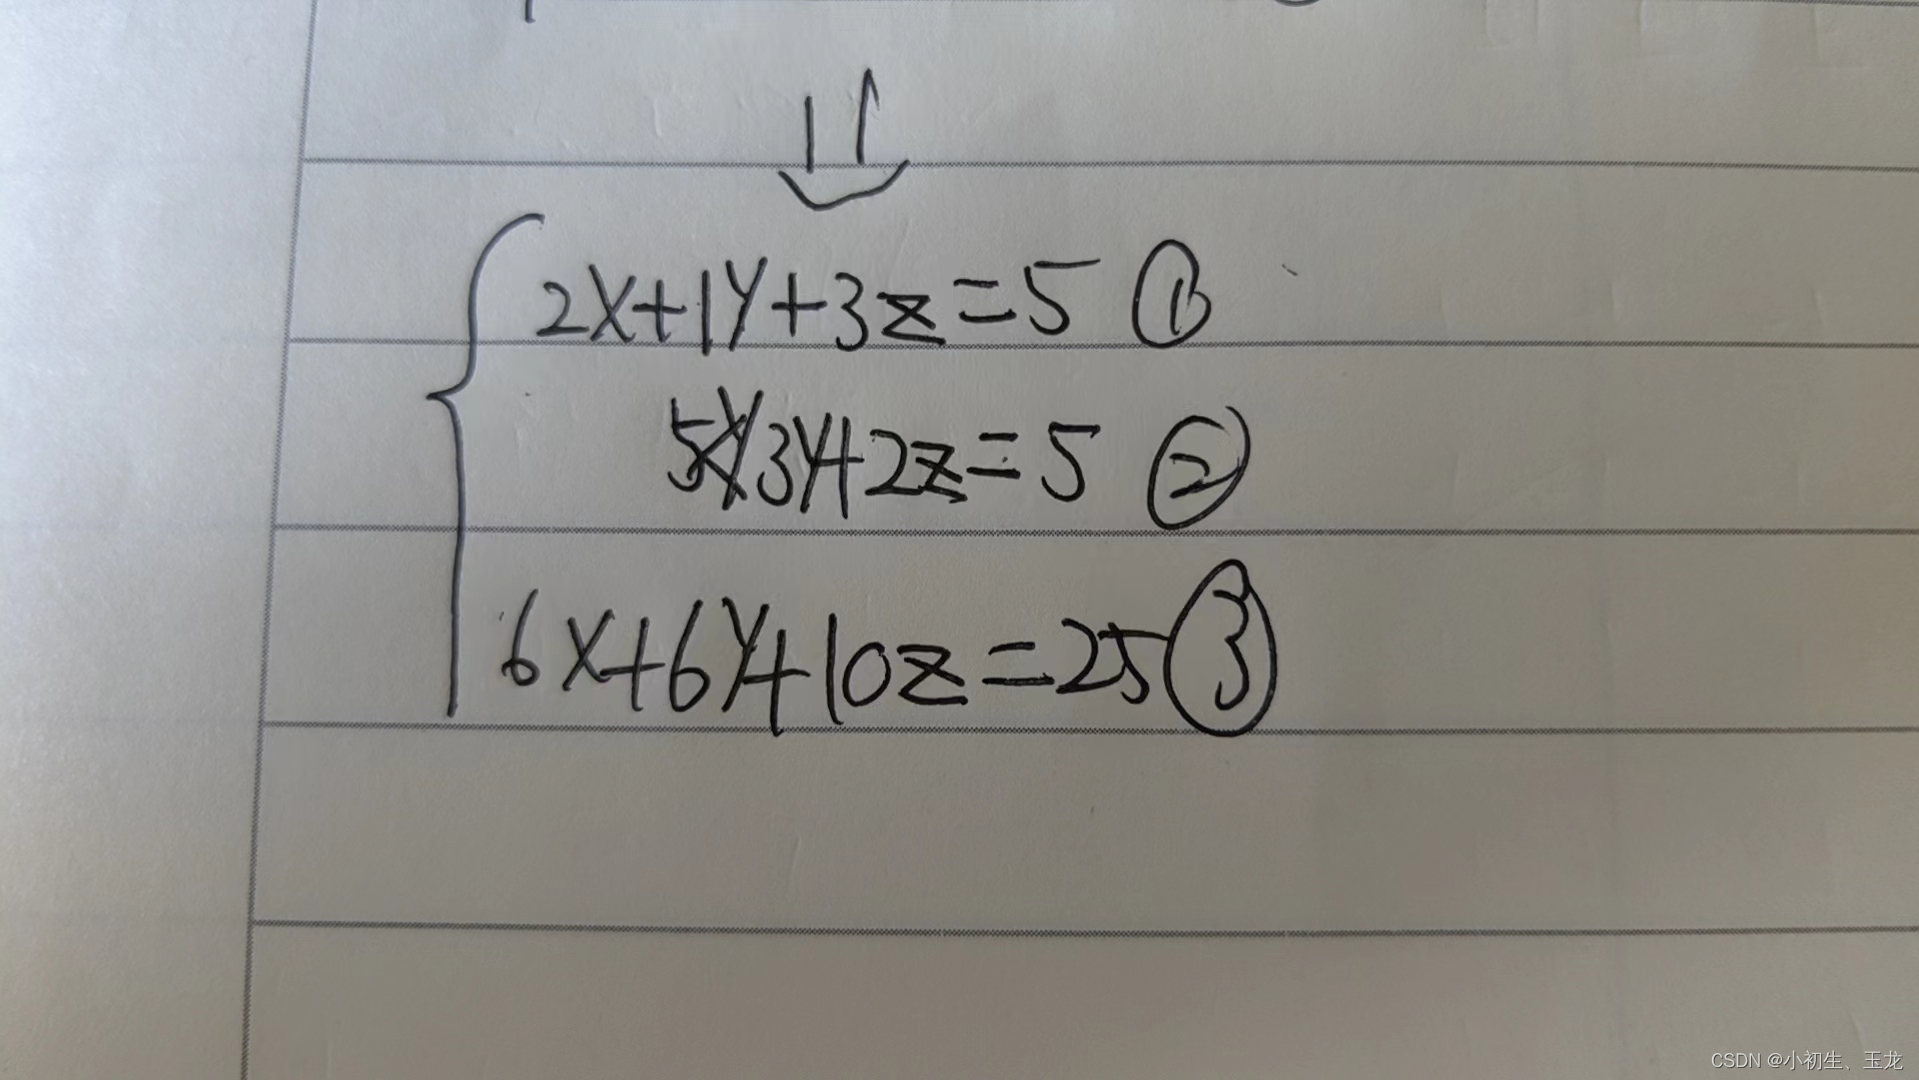 2x+1y+3z=5 ①
3y+2z=5 ②
6x+6y+10z=25 ③
CSDN @小初生、玉龙